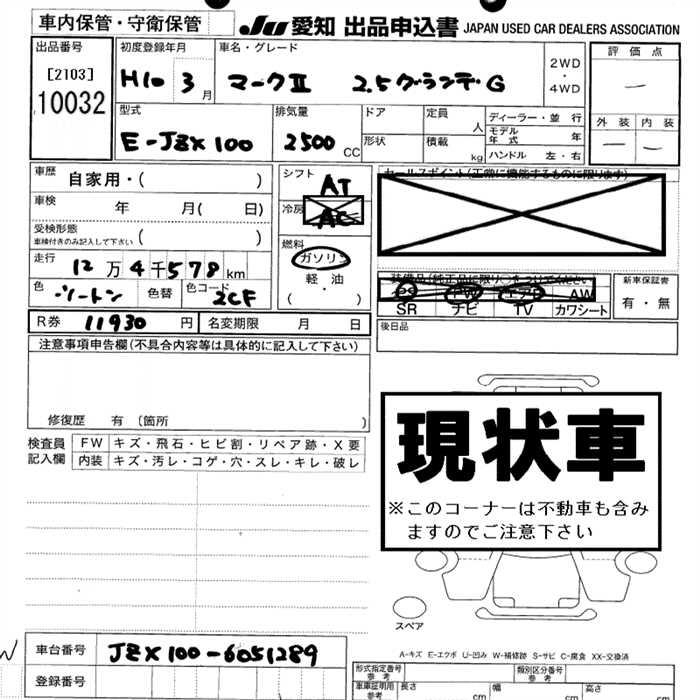 車内保管・守衛保管
JU 愛知 出品申込書 JAPAN USED CAR DEALERS ASSOCIATION
出品番号 初度登録年月 車名・グレード 2WD・4WD 評価点
[2103]
10032
H10 3月 マークⅡ 2.5グランデG
型式 排気量 ドア 定員 人 ディーラー・並行
E-JZX100 2500CC 形状 積載 kg モデル年式 年
ハンドル 左・右
外装 内装
車歴 自家用・( )
シフト AT
セールスポイント(正常に機能するものに限ります)
車検 年 月( 日)
冷房 AC
受検形態 車検付きのみ記入して下さい ( )
燃料 ガソリン・軽油 ( )
走行 12万4千578km
色 ソートン 色替 色コード 2CF
SR ナビ TV AW カワシート
新車保証書 有・無
R券 11930円 名変期限 月 日
後日品
注意事項申告欄(不具合内容等は具体的に記入して下さい)
修復歴 有 〔箇所 〕
現状車
※このコーナーは不動車も含み
ますのでご注意下さい
検査員記入欄 FW キズ・飛石・ヒビ割・リペア跡・X要
内装 キズ・汚レ・コゲ・穴・スレ・キレ・破レ
スペア
A-キズ E-エクボ U-凹み W-補修跡 S-サビ C-腐食 XX-交換済
車台番号 JZX100-6051289
登録番号
形式指定番号 参考 類別区分番号 参考
車庫証明用 参考 長さ cm 幅 cm 高さ cm